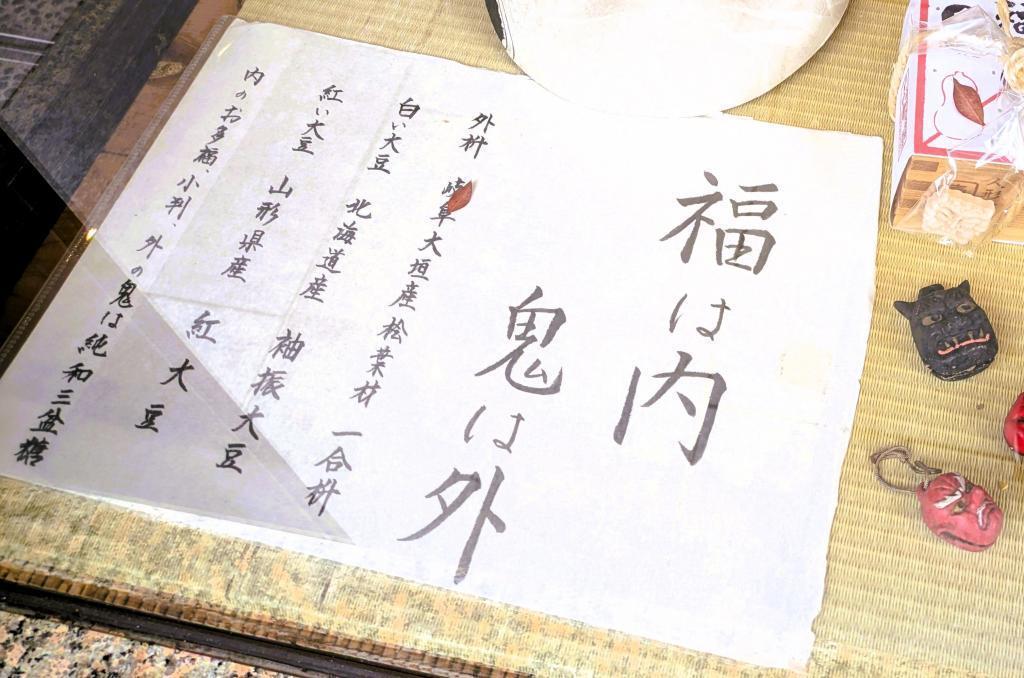 福は内
鬼は外
外枡 岐阜大垣産桧葉材 一合枡
白い大豆 北海道産 袖振大豆
紅い大豆 山形県産 紅大豆
内のお多福、小判、外の鬼は純和三盆糖